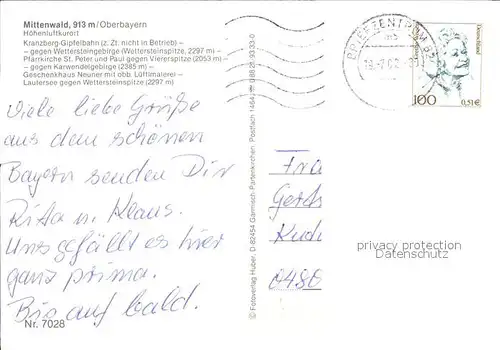 Mittenwald, 913 m/Oberbayern
Höhenluftkurort
Kranzberg-Gipfelbahn (z. Zt. nicht in Betrieb) –
– gegen Wettersteingebirge (Wettersteinspitze, 2297 m) –
Pfarrkirche St. Peter und Paul gegen Viererspitze (2053 m) –
– gegen Karwendelgebirge (2385 m) –
Geschenkhaus Neuner mit obb. Lüftlmalerei –
Lautersee gegen Wettersteinspitze (2297 m)
Viele liebe Grüße
aus dem schönen
Bayern senden Dir
Rita u. Klaus.
Uns gefällt es hier
ganz prima.
Bis auf bald.
Nr. 7028
© Fotoverlag Huber, D 82454 Garmisch-Partenkirchen, Postfach 1464
BRIEFZENTRUM 82
Deutschland
100
0,51€
Fra
Gert
0480
privacy protection
Datenschutz